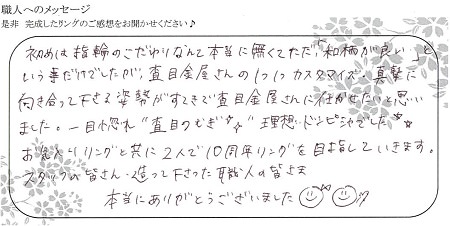 職人へのメッセージ
是非 完成したリングのご感想をお聞かせください♪
初めは指輪のこだわりなんて本当に無くてただ「和柄が良い」と
いう事だけでしたが、杢目金屋さんの1つ1つカスタマイズ、真摯に
向き合って下さる姿勢がすてきで杢目金屋さんに任せたいと思い
ました。一目惚れ"杢目つむぎ☆"理想ドンピシャでした☆
お気に入りリングと共に2人で10周年リングを目指していきます。
スタッフの皆さん・造って下さった職人の皆さま
本当にありがとうございました